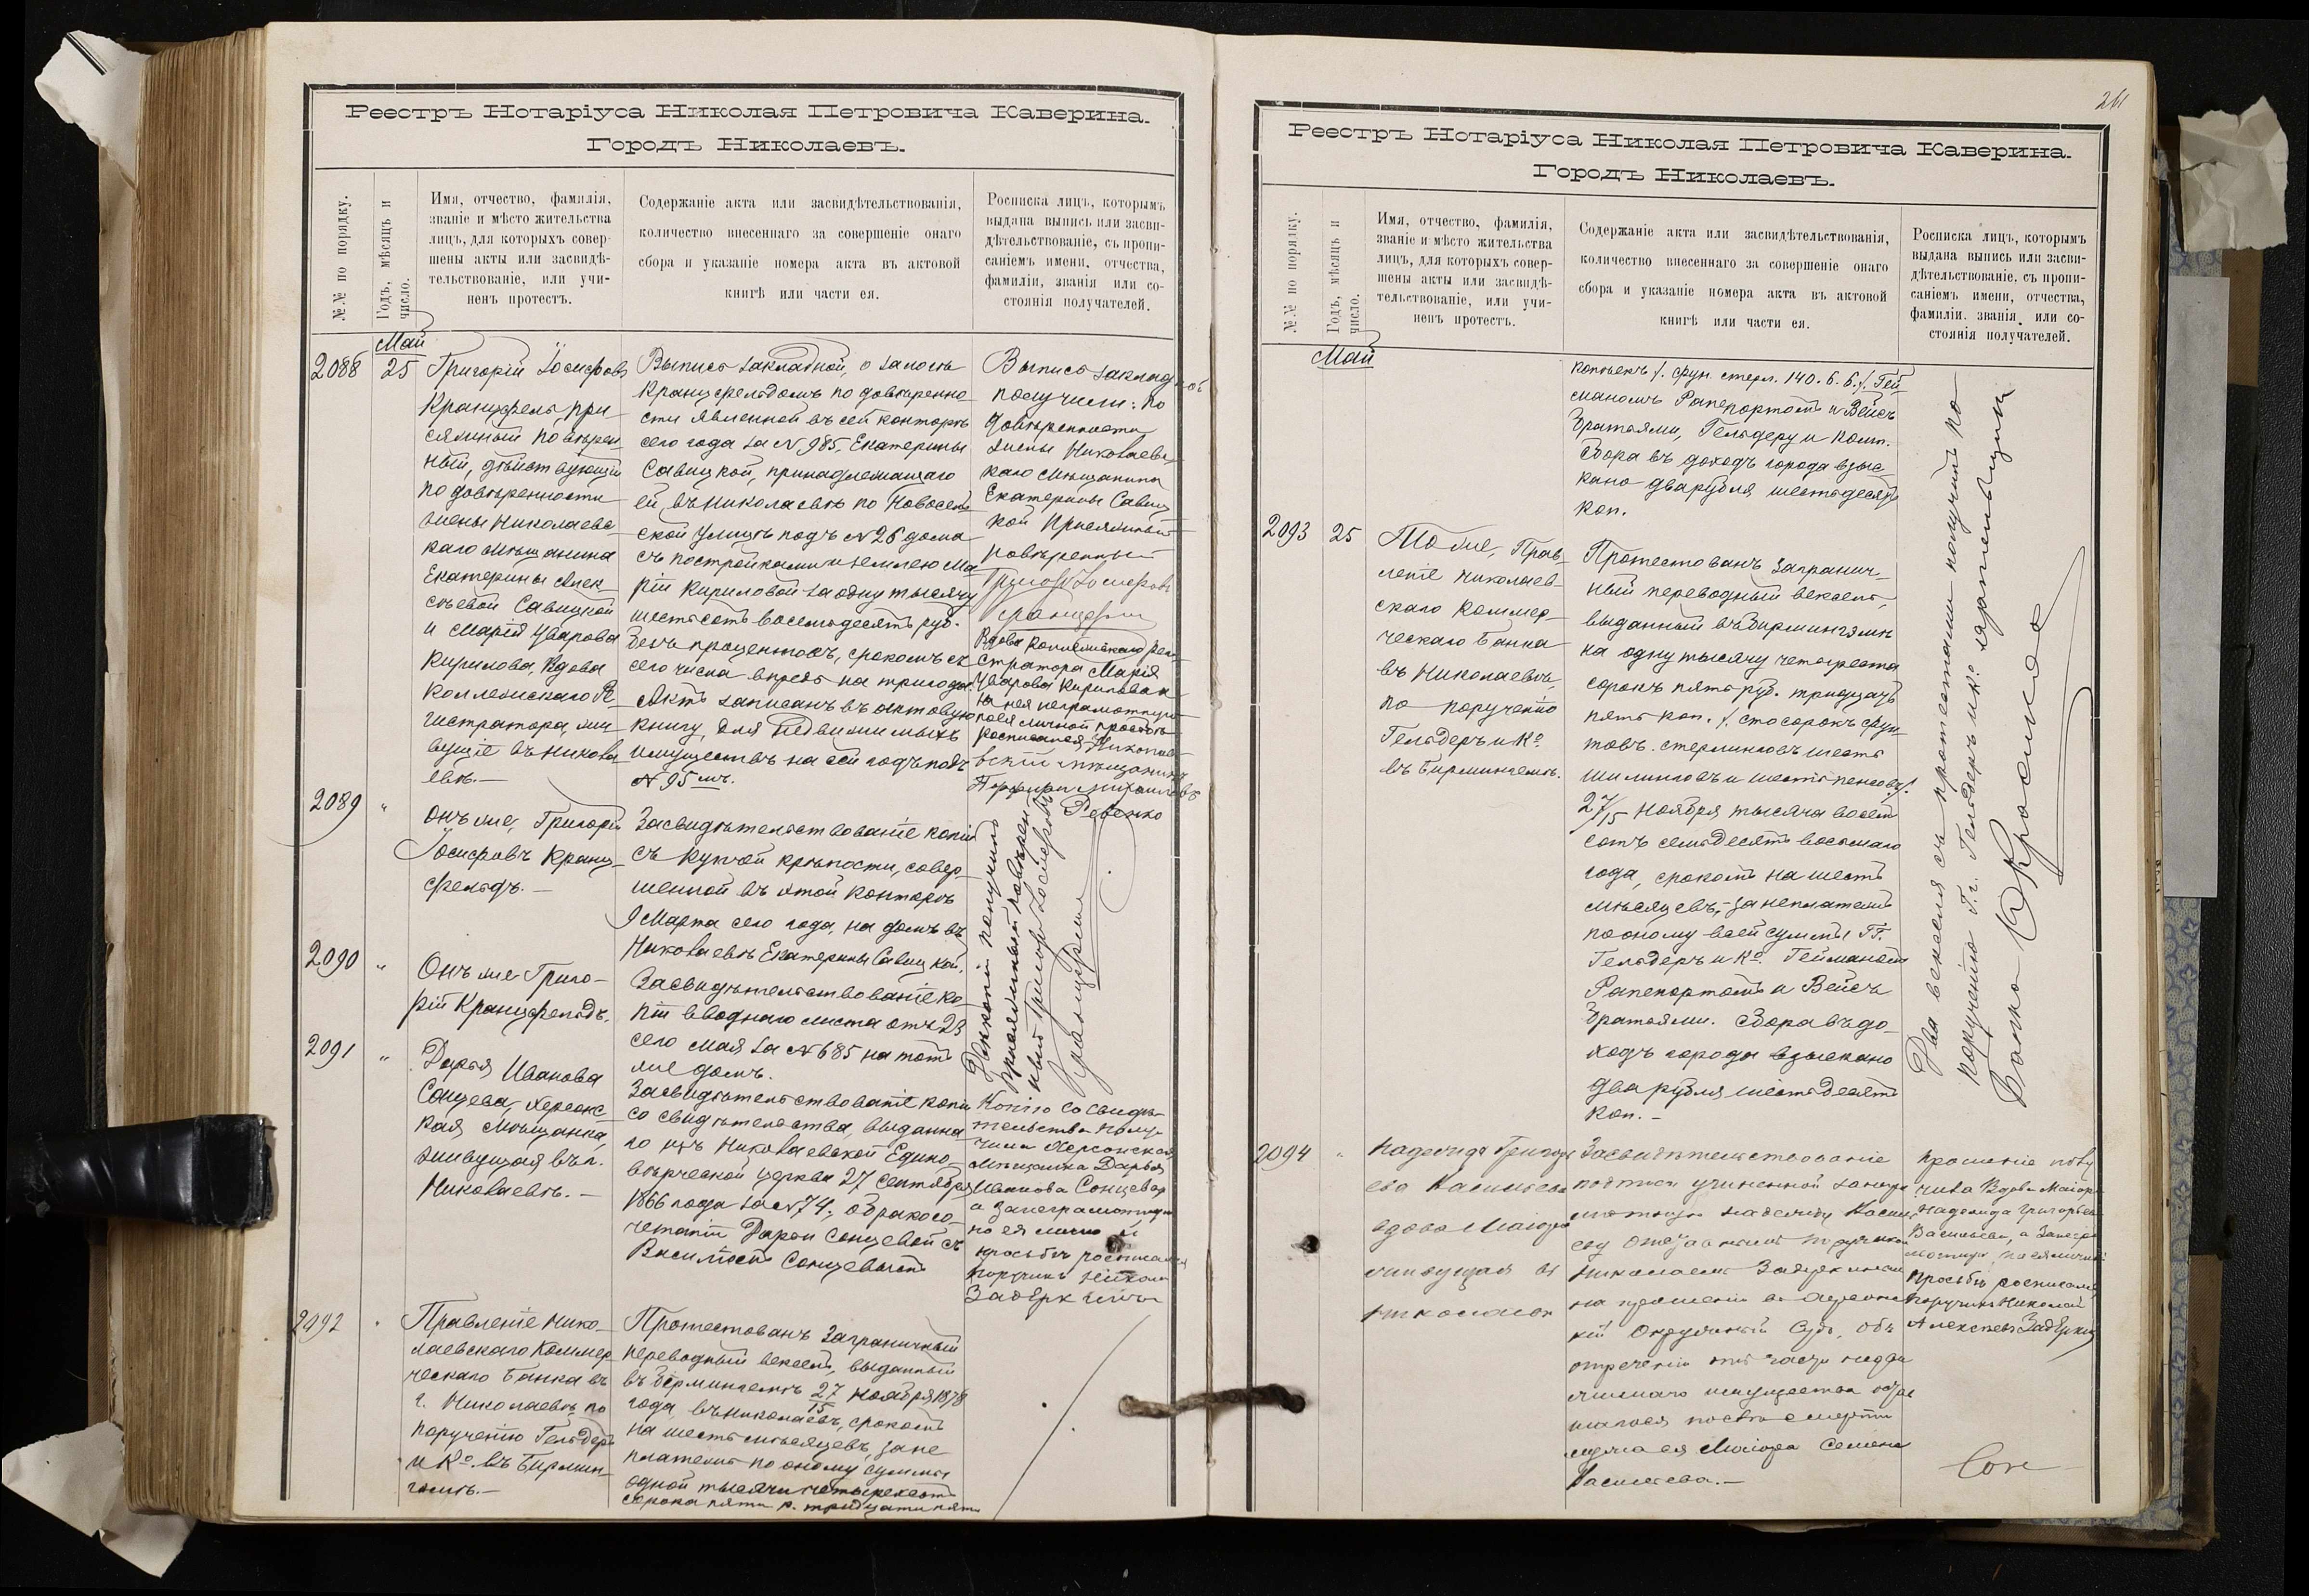 Реестръ Нотаріуса Николая Петровича Каверина.
Городъ Николаевъ.
№№ по порядку.
Годъ, мѣсяцъ и
число.
Имя, отчество, фамилія,
званіе и мѣсто жительства
лицъ, для которыхъ совер-
шены акты или засвидѣ-
тельствованіе, или учи-
ненъ протестъ.
Содержаніе акта или засвидѣтельствованія,
количество внесеннаго за совершеніе онаго
сбора и указаніе номера акта въ актовой
книгѣ или части ея.
Росписка лицъ, которымъ
выдана выпись или засви-
дѣтельствованіе, съ пропи-
саніемъ имени, отчества,
фамиліи, званія или со-
стоянія получателей.
Май
2088
25
Григорій Іосифовъ
Кранцфельдъ при
сяжный повѣрен
ный, дѣйствующій
по довѣренности
жены Николаевс
каго мѣщанина
Екатерины Алек
сѣевой Савицкой
и Марія Уварова
Кирилова, вдова
Коллежскаго Ре
гистратора, жи
вущіе въ Никола
евѣ.—
Выпись закладной, о залогѣ
Кранцфельдомъ по довѣренно
сти явленной въ сей конторѣ
сего года за № 985, Екатерины
Савицкой, принадлежащаго
ей, въ Николаевѣ по Новосель
ской улицѣ подъ № 26 дома
съ постройками и землею Ма
ріи Кириловой за одну тысячу
шестьсотъ восемьдесятъ руб.
безъ процентовъ, срокомъ съ
сего числа впредь на три года.
Актъ записанъ въ актовую
книгу, для недвижимыхъ
имуществъ на сей годъ подъ
№ 95 мъ.
Выпись закладной
получили: по
довѣренности
жены Николаевс
каго мѣщанина
Екатерины Савиц
кой Присяжный
повѣренный
Григорій Іосифовъ
Кранцфельдъ
Вдова Коллежскаго Реги
стратора Марія
Уварова Кирилова а
за нея неграмотную
по ея личной просьбѣ
росписался Николае
вскій мѣщанинъ
Порфирій Михайловъ
Ребенко
2089
"
Онъ же, Григорій
Іосифовъ Кранц
фельдъ.—
Засвидѣтельствованіе копіи
съ купчей крѣпости, совер
шенной въ этой конторѣ
9 Марта сего года, на домъ въ
Николаевѣ Екатерины Савицкой.
2090
"
Онъ же Григо-
рій Кранцфельдъ.
Засвидѣтельствованіе ко-
піи вводнаго листа отъ 23
сего мая за № 685 на тотъ
же домъ.
Двѣ копіи получилъ
Присяжный повѣрен
ный Григорій Іосифовъ
Кранцфельдъ
2091
"
Дарья Иванова
Сонцева, херсонс
кая мѣщанка,
живущая въ г.
Николаевѣ.—
Засвидѣтельствованіе копіи
со свидѣтельства, выданна
го изъ Николаевской Едино
вѣрческой церкви 27 Сентября
1866 года за № 74, о бракосо
четаніи Дарьи Сонцевой съ
Василіемъ Сонцевымъ
Копію со свидѣ-
тельства полу-
чила Херсонская
мѣщанка Дарья
Иванова Сонцева
а за неграмотную
по ея личной
просьбѣ росписался
поручикъ Никол
Задеркинъ
2092
"
Правленіе Нико-
лаевскаго Коммер
ческаго Банка въ
г. Николаевѣ по
порученію Гельдеръ
и Ко. въ Бирмин-
гамѣ.—
Протестованъ Заграничный
переводный вексель, выданный
въ Бермингемѣ 27/15 ноября 1878
года, въ Николаевѣ, срокомъ
на шесть мѣсяцевъ, за не
платежъ по оному суммы
одной тысячи четырехсотъ
сорока пяти р. тридцати пяти
261
Реестръ Нотаріуса Николая Петровича Каверина.
Городъ Николаевъ.
№№ по порядку.
Годъ, мѣсяцъ и
число.
Имя, отчество, фамилія,
званіе и мѣсто жительства
лицъ, для которыхъ совер-
шены акты или засвидѣ-
тельствованіе, или учи-
ненъ протестъ.
Содержаніе акта или засвидѣтельствованія,
количество внесеннаго за совершеніе онаго
сбора и указаніе номера акта въ актовой
книгѣ или части ея.
Росписка лицъ, которымъ
выдана выпись или засви-
дѣтельствованіе, съ пропи-
саніемъ имени, отчества,
фамиліи. званія или со-
стоянія получателей.
Май
копѣекъ /. фун. стерл. 140. 6. 6./. Гей
маномъ Рапепортомъ и Вейсъ
Братьями, Гельдеру и Комп.
Сбора въ доходъ города взыс
кано два рубля шестьдесятъ
коп.
2093
25
Тоже, Прав-
леніе Николаев
скаго Коммер
ческаго Банка
въ Николаевѣ,
по порученію
Гельдеръ и Ко.
въ Бирмингемѣ.
Протестованъ Заграниче-
ный переводный вексель,
выданный въ Бирмингямѣ
на одну тысячу четыреста
сорокъ пять руб. тридцать
пять коп. /. сто сорокъ фун-
товъ. стерлинговъ шесть
шилинговъ и шесть пенсовъ/.
27/15 ноября тысяча восем
сотъ семьдесятъ восьмаго
года, срокомъ на шесть
мѣсяцевъ, за неплатежъ
по оному всей суммы ГГ.
Гельдеръ и Ко. Гейманомъ
Рапепортомъ и Вейсъ
Братьями. Сбора въ до
ходъ города взыскано
два рубля шестьдесятъ
коп.—
Два векселя съ протестами получилъ по
порученію Г.г. Гельдеръ и Ко.
2094
"
Надежда Григорь
ева Васильева
вдова Маіора
живущая въ
Николаевѣ
Засвидѣтельствованіе
подписи учиненной за негра
мотную Надежду Василь
еву отставнымъ поручикомъ
Николаемъ Задеркинымъ
на прошеніи въ Херсонс
кій Окружный Судъ, объ
отреченіи отъ части недви
жимаго имущества остав
шагося послѣ смерти
мужа ея Маіора Семена
Васильева.—
Прошеніе полу
чила Вдова Маіора
Надежда Григорьева
Васильева, а за негра
мотную, по ея личной
просьбѣ росписался
поручикъ Николай
Алексѣевъ Задеркинъ